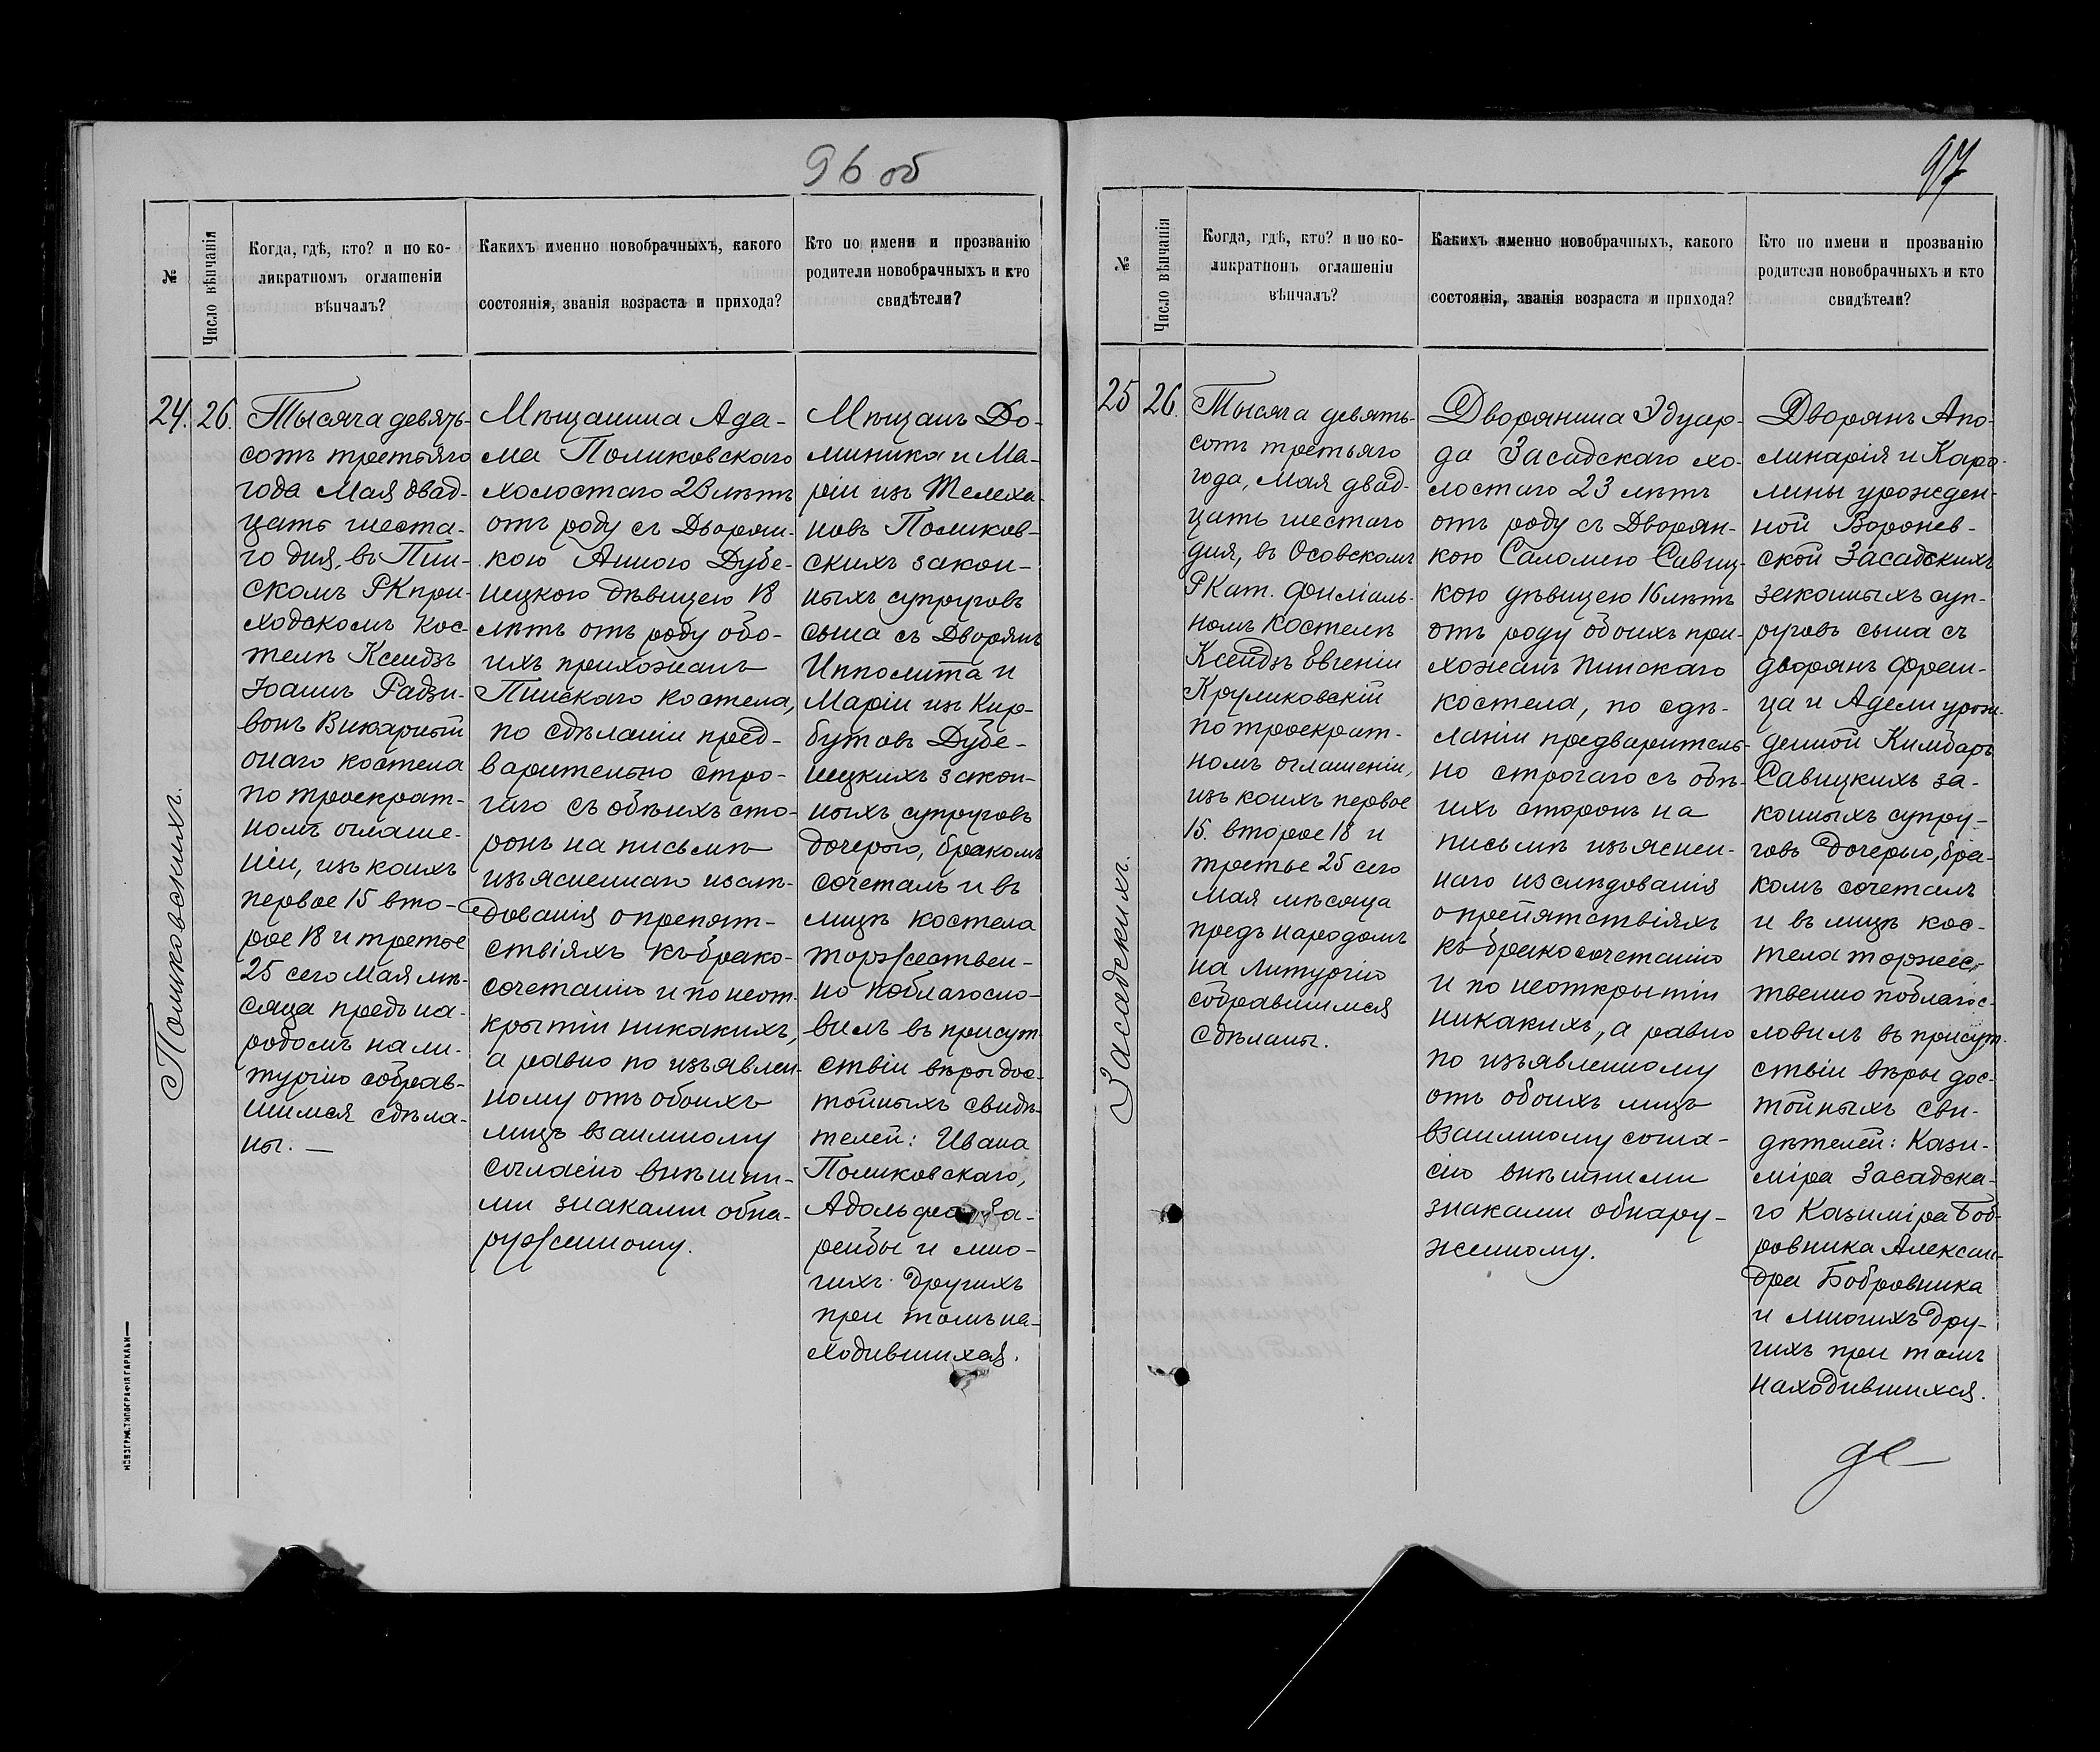 96 об
№
Число вѣнчанія
Когда, гдѣ, кто? и по ко-
ликратномъ оглашеніи
вѣнчалъ?
Какихъ именно новобрачныхъ, какого
состоянія, званія возраста и прихода?
Кто по имени и прозванію
родители новобрачныхъ и кто
свидѣтели?
24.
26.
Поликовскихъ.
Тысяча девять-
сотъ третьяго
года Мая двад-
цать шеста-
го дня, въ Пин-
скомъ РК при-
ходскомъ Кос-
телѣ Ксендзъ
Іоаннъ Радзи-
вонъ Викарный
онаго костела
по троекрат-
номъ оглаше-
ніи, изъ коихъ
первое 15 вто-
рое 18 и третье
25 сего Мая мѣ-
сяца предъ на-
родомъ на ли-
тургію собрав-
шимся сдѣла-
ны. —
Мѣщанина Ада-
ма Поликовскаго
холостаго 23 лѣтъ
отъ роду съ Дворян-
кою Анною Дубе-
нецкою дѣвицею 18
лѣтъ отъ роду обо-
ихъ прихожанъ
Пинскаго костела,
по сдѣланіи пред-
варительно стро-
гаго съ обѣихъ сто-
ронъ на письмѣ
изъясненнаго изслѣ-
дованія о препят-
ствіяхъ къ брако-
сочетанію и по неот-
крытіи никакихъ,
а равно по изъявлен-
ному отъ обоихъ
лицъ взаимному
согласію внѣшни-
ми знаками обна-
руженному.
Мѣщанъ До-
миника и Ма-
ріи изъ Телеха-
новъ Поликов-
скихъ закон-
ныхъ супруговъ
сына съ Дворянъ
Ипполита и
Маріи изъ Кир-
бутовъ Дубе-
нецкихъ закон-
ныхъ супруговъ
дочерью, бракомъ
сочеталъ и въ
лицѣ костела
торжествен-
но поблагосло-
вилъ въ присут-
ствіи вѣры дос-
тойныхъ свидѣ-
телей: Ивана
Поликовскаго,
Адольфа За-
рембы и мно-
гихъ другихъ
при томъ на-
ходившихся.
НОВОГРУД. ТИПОГРАФІЯ ГАРКАВИ
97
№
Число вѣнчанія
Когда, гдѣ, кто? и по ко-
ликратномъ оглашеніи
вѣнчалъ?
Какихъ именно новобрачныхъ, какого
состоянія, званія возраста и прихода?
Кто по имени и прозванію
родители новобрачныхъ и кто
свидѣтели?
25
26.
Засадскихъ.
Тысяча девять-
сотъ третьяго
года, Мая двад-
цать шестаго
дня, въ Осовскомъ
РКат. филіаль-
номъ костелѣ
Ксендзъ Евгеній
Круликовскій
по троекрат-
номъ оглашеніи,
изъ коихъ первое
15. второе 18 и
третье 25 сего
Мая мѣсяца
предъ народомъ
на литургію
собравшимся
сдѣланы.
Дворянина Эдуар-
да Засадскаго хо-
лостаго 23 лѣтъ
отъ роду съ Дворян-
кою Саломею Савиц-
кою дѣвицею 16 лѣтъ
отъ роду обоихъ при-
хожанъ Пинскаго
костела, по сдѣ-
ланіи предваритель-
но строгаго съ обѣ-
ихъ сторонъ на
письмѣ изъяснен-
наго изслѣдованія
о препятствіяхъ
къ бракосочетанію
и по неоткрытіи
никакихъ, а равно
по изъявленному
отъ обоихъ лицъ
взаимному согла-
сію внѣшними
знаками обнару-
женному.
Дворянъ Апо-
линарія и Каро-
лины урожден-
ной Воронев-
ской Засадскихъ
законныхъ суп-
руговъ сына съ
дворянъ Фран-
ца и Адели урож-
денной Кимбаръ
Савицкихъ за-
конныхъ супру-
говъ дочерью, бра-
комъ сочеталъ
и въ лицѣ кос-
тела торжес-
твенно поблагос-
ловилъ въ присут-
ствіи вѣры дос-
тойныхъ сви-
дѣтелей: Кази-
міра Засадска-
го Казиміра Боб-
ровника Алексан-
дра Бобровника
и многихъ дру-
гихъ при томъ
находившихся.